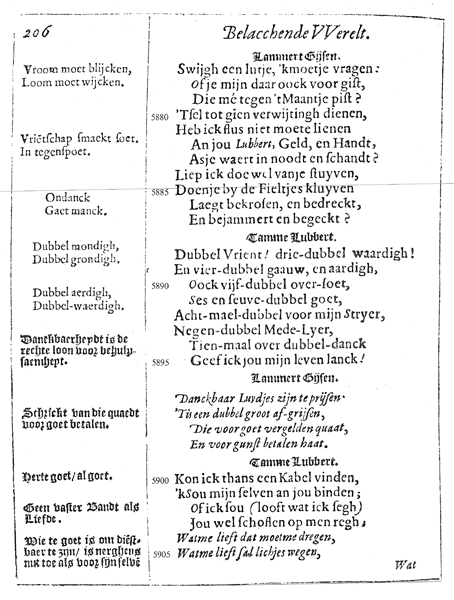 206
Belacchende VVerelt.
Lammert Gijsen.
Vroom moet blijcken,
Swijgh een lutje, 'kmoetje vragen:
Loom moet wijcken.
Of je mijn daar oock voor gist,
Die mé tegen 't Maantje pist?
5880 'Tsel tot gien verwijtingh dienen,
Heb ick flus niet moete lienen
Vriétschap smaekt soet.
An jou Lubbert, Geld, en Handt,
In tegenspoet.
Asje waert in noodt en schandt?
Liep ick doe wel vanje stuyven,
Ondanck
5885 Doenje by de Fieltjes kluyven
Gaet manck.
Laegt bekrosen, en bedreckt,
En bejammert en begeckt?
Tamme Lubbert.
Dubbel mondigh,
Dubbel Vrient! drie-dubbel waardigh!
Dubbel grondigh.
En vier-dubbel gaauw, en aardigh,
5890 Oock vijf-dubbel over-soet,
Dubbel aerdigh,
Ses en seuve-dubbel goet,
Dubbel-waerdigh.
Acht-mael-dubbel voor mijn Stryer,
Negen-dubbel Mede-Lyer,
Danckbaerheydt is de
Tien-maal over dubbel-danck
rechte loon voor behulp-
5895 Geef ick jou mijn leven lanck!
saemheyt.
Lammert Gijsen.
Danckbaar Luydjes zijn te prijsen
Schrickt van die quaedt
'Tis een dubbel groot af-grijsen,
voor goet betalen.
Die voor goet vergelden quaat,
En voor gunst betalen haat.
Tamme Lubbert.
Herte goet / al goet.
5900 Kon ick thans een Kabel vinden,
'kSou mijn selven an jou binden;
Geen vaster Bandt als
Of ick sou (looft wat ick segh)
Liefde.
Jou wel schoften op men regh,
Wie te goet is om diēst-
Watme liefst dat moetme dregen,
baer te zijn / is nerghens
5905 Watme liefst sal lichjes wegen,
nut toe als voor sijn selvē
Wat